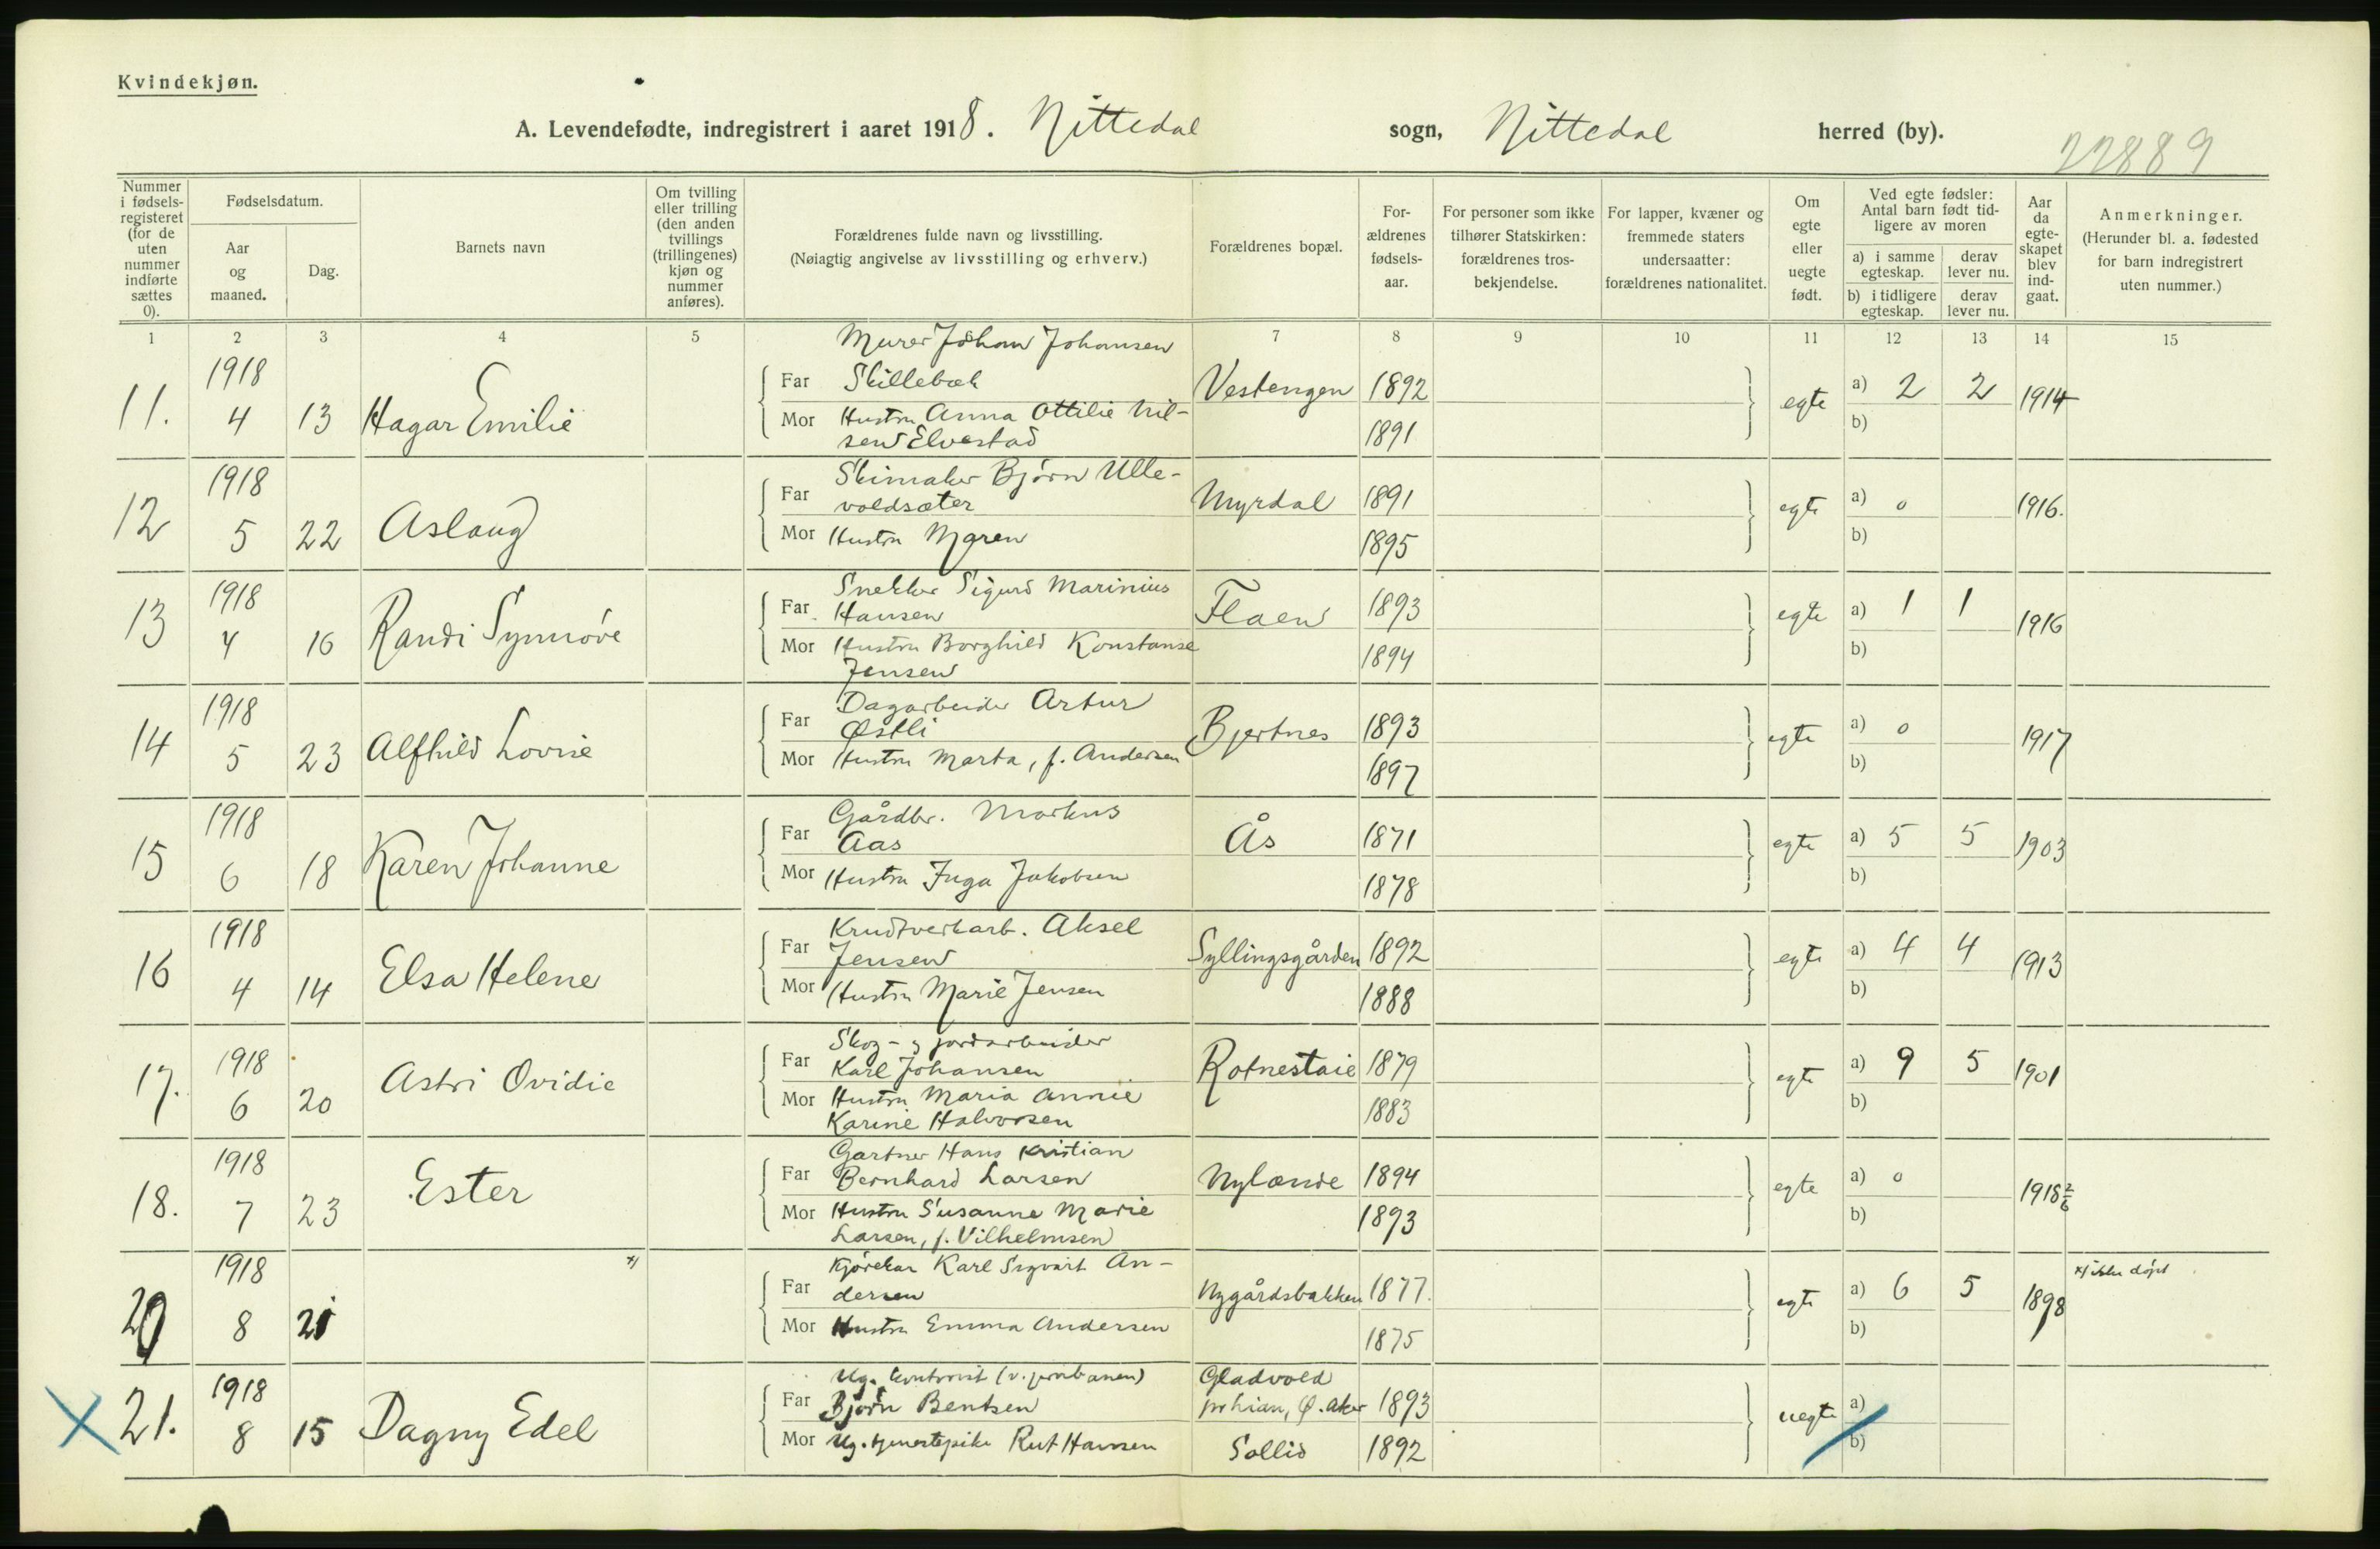 Kvindekjøn.
A. Levendefødte, indregistrert i aaret 1918. Nittedal sogn, Nittedal herred (by).
22889
Nummer i fødsels-registeret (for de uten nummer indførte sættes 0).
Fødselsdatum.
Aar og maaned.
Dag.
Barnets navn
Om tvilling eller trilling (den anden tvillings (trillingenes) kjøn og nummer anføres).
Forældrenes fulde navn og livsstilling.
(Nøiagtig angivelse av livsstilling og erhverv.)
Forældrenes bopæl.
For-ældrenes fødsels-aar.
For personer som ikke tilhører Statskirken: forældrenes tros-bekjendelse.
For lapper, kvæner og fremmede staters undersaatter: forældrenes nationalitet.
Om egte eller uegte født.
Ved egte fødsler: Antal barn født tid-ligere av moren
a) i samme egteskap.
derav lever nu.
b) i tidligere egteskap.
derav lever nu.
Aar da egte-skapet blev ind-gaat.
Anmerkninger.
(Herunder bl. a. fødested for barn indregistrert uten nummer.)
1 2 3 4 5 7 8 9 10 11 12 13 14 15
Murer Johan Johansen
11. 1918 4 13 Hagar Emilie
Far Skillebæk Vestengen 1892 egte a) 2 2 1914
Mor Hustru Anna Ottilie Nil-
sen Elvestad 1891 b)
Skimaker Bjørn Ulle-
12 1918 5 22 Aslaug
Far voldsæter Myrdal 1891 egte a) 0 1916.
Mor Hustru Maren 1895 b)
Snekker Sigurd Marinius
13 1918 4 16 Randi Synnøve
Far Hansen Flaen 1893 egte a) 1 1 1916
Mor Hustru Borghild Konstanse
Jensen 1894 b)
Dagarbeider Artur
14 1918 5 23 Alfhild Lovise
Far Østli Bjertnes 1893 egte a) 0 1917
Mor Hustru Marta, f. Andersen 1897 b)
Gårdbr. Markus
15 1918 6 18 Karen Johanne
Far Aas Ås 1871 egte a) 5 5 1903
Mor Hustru Inga Jakobsen 1878 b)
Krudtverkarb. Aksel
16 1918 4 14 Elsa Helene
Far Jensen Syllingsgården 1892 egte a) 4 4 1913
Mor Hustru Marie Jensen 1888 b)
Skog- og jordarbeider
17. 1918 6 20 Astri Ovidie
Far Karl Johansen Rotnestaie 1879 egte a) 9 5 1901
Mor Hustru Maria Annie
Karine Halvorsen 1883 b)
Gartner Hans Kristian
18. 1918 7 23 Ester
Far Bernhard Larsen Nylænde 1894 egte a) 0 1918 2/6
Mor Hustru Susanne Marie
Larsen, f. Vilhelmsen 1893 b)
Kjørekar Karl Sigvart An-
20 1918 8 21 x)
Far dersen Nygårdsbakken 1877. egte a) 6 5 1898 x) ikke døpt
Mor Hustru Emma Andersen 1875 b)
Ug. kontorist (v. jernbanen) Gladvold
21. 1918 8 15 Dagny Edel
Far Bjørn Bentsen Ø. Aker 1893 uegte a)
Mor Ug. tjenestepike Rut Hansen Sollid 1892 b)